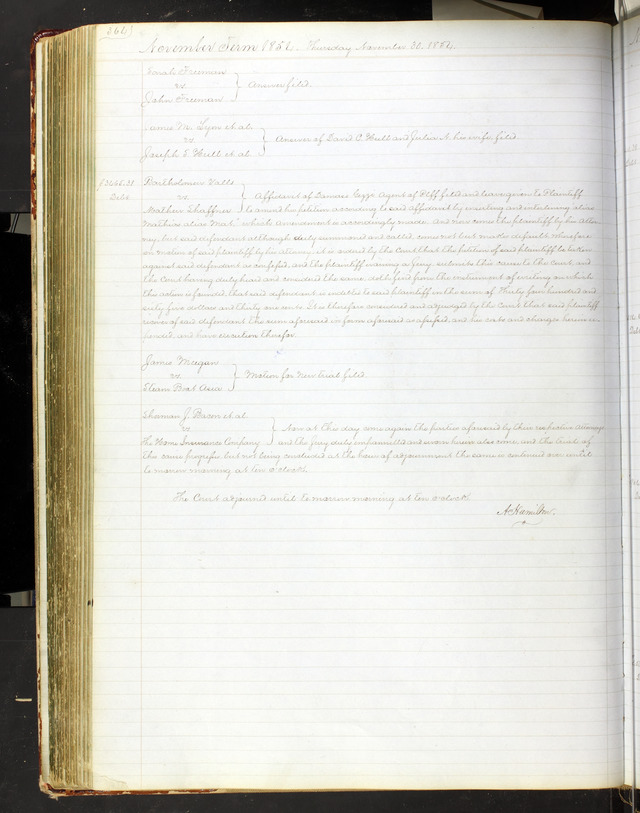 November Term 1854 — Thursday November 30, 1854.
Sarah Freeman
vs. } Answer filed.
John Freeman
James M. Lynn et al.
vs } Answer of David C. Hull and Julia A. his wife filed.
Joseph E. Hull et al.
Bartholomew
Debt
vs. } Affidavit of Agent of Plff filed and leave given to Plaintiff
Mathew Shaffner to amend his petition according to said affidavit by erasing and interlining alias
"Mathias alias Mat." which amendment is accordingly made. And now comes the plaintiff by his attor-
ney, but said defendant although duly summoned and called, comes not but makes default. Wherefore
on motion of said plaintiff by his attorney, it is ordered by the Court that the petition of said plaintiff be taken
against said defendant as confessed, and the plaintiff waiving a jury submits this cause to the Court, and
the Court having duly heard and considered the same doth find from the instrument of writing on which
this action is founded, that said defendant is indebted to said plaintiff in the sum of Thirty four hundred and
sixty five dollars and thirty one cents. It is therefore considered and adjudged by the Court that said plaintiff
recover of said defendant the sum aforesaid in form aforesaid confessed, and his costs and charges herein ex-
pended, and have execution therefor.
James Meegan
vs. } Motion for New trial filed.
Steam Boat Asia
J. Bacon et al.
vs } Now at this day come again the parties aforesaid by their respective attorneys
The Home Insurance Company and the Jury duly impannelled and sworn herein also come, and the trial of
this cause progresses but not being concluded at the hour of adjournment the same is continued over until
to morrow morning at ten o'clock.
The Court adjourned until to morrow morning at ten o'clock
A. Hamilton.